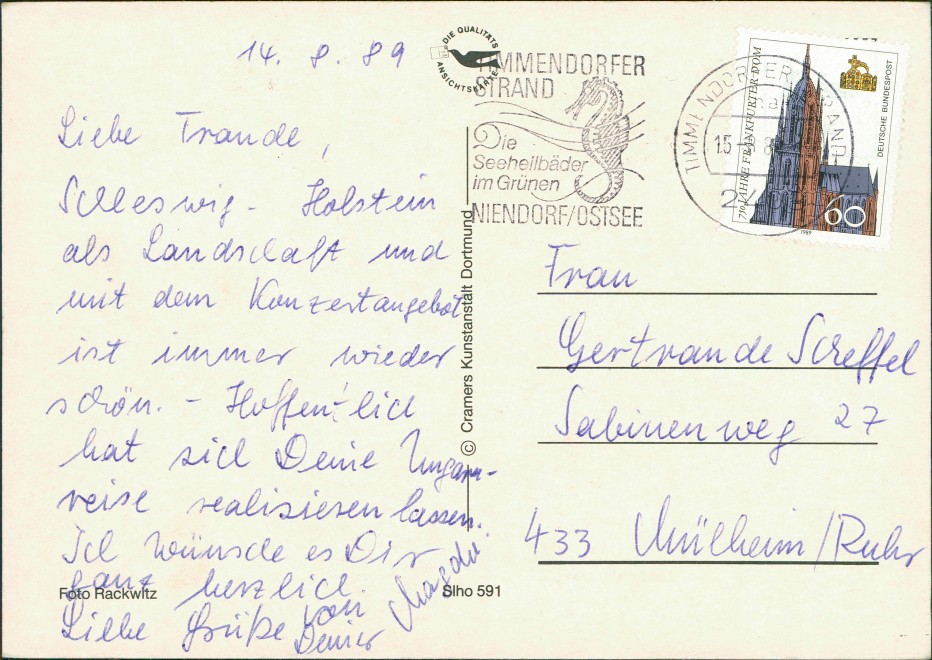 14. 8. 89
Liebe Trande,
Schleswig-Holstein
als Landschaft und
mit dem Konzertangebot
ist immer wieder
schön. - Hoffentlich
hat sich Deine Ungarn-
reise realisieren lassen.
Ich wünsche es Dir
ganz herzlich.
Liebe Grüße von
Deiner
Magda
Foto Rackwitz
Slho 591
© Cramers Kunstanstalt Dortmund
DIE QUALITÄTS
ANSICHTSKARTE
TIMMENDORFER
STRAND
Die
Seeheilbäder
im Grünen
NIENDORF/OSTSEE
TIMMENDORFER STRAND
15
750 JAHRE FRANKFURTER DOM
DEUTSCHE BUNDESPOST
60
1989
Frau
Gertrande Scheffel
Sabinenweg 27
433 Mülheim/Ruhr